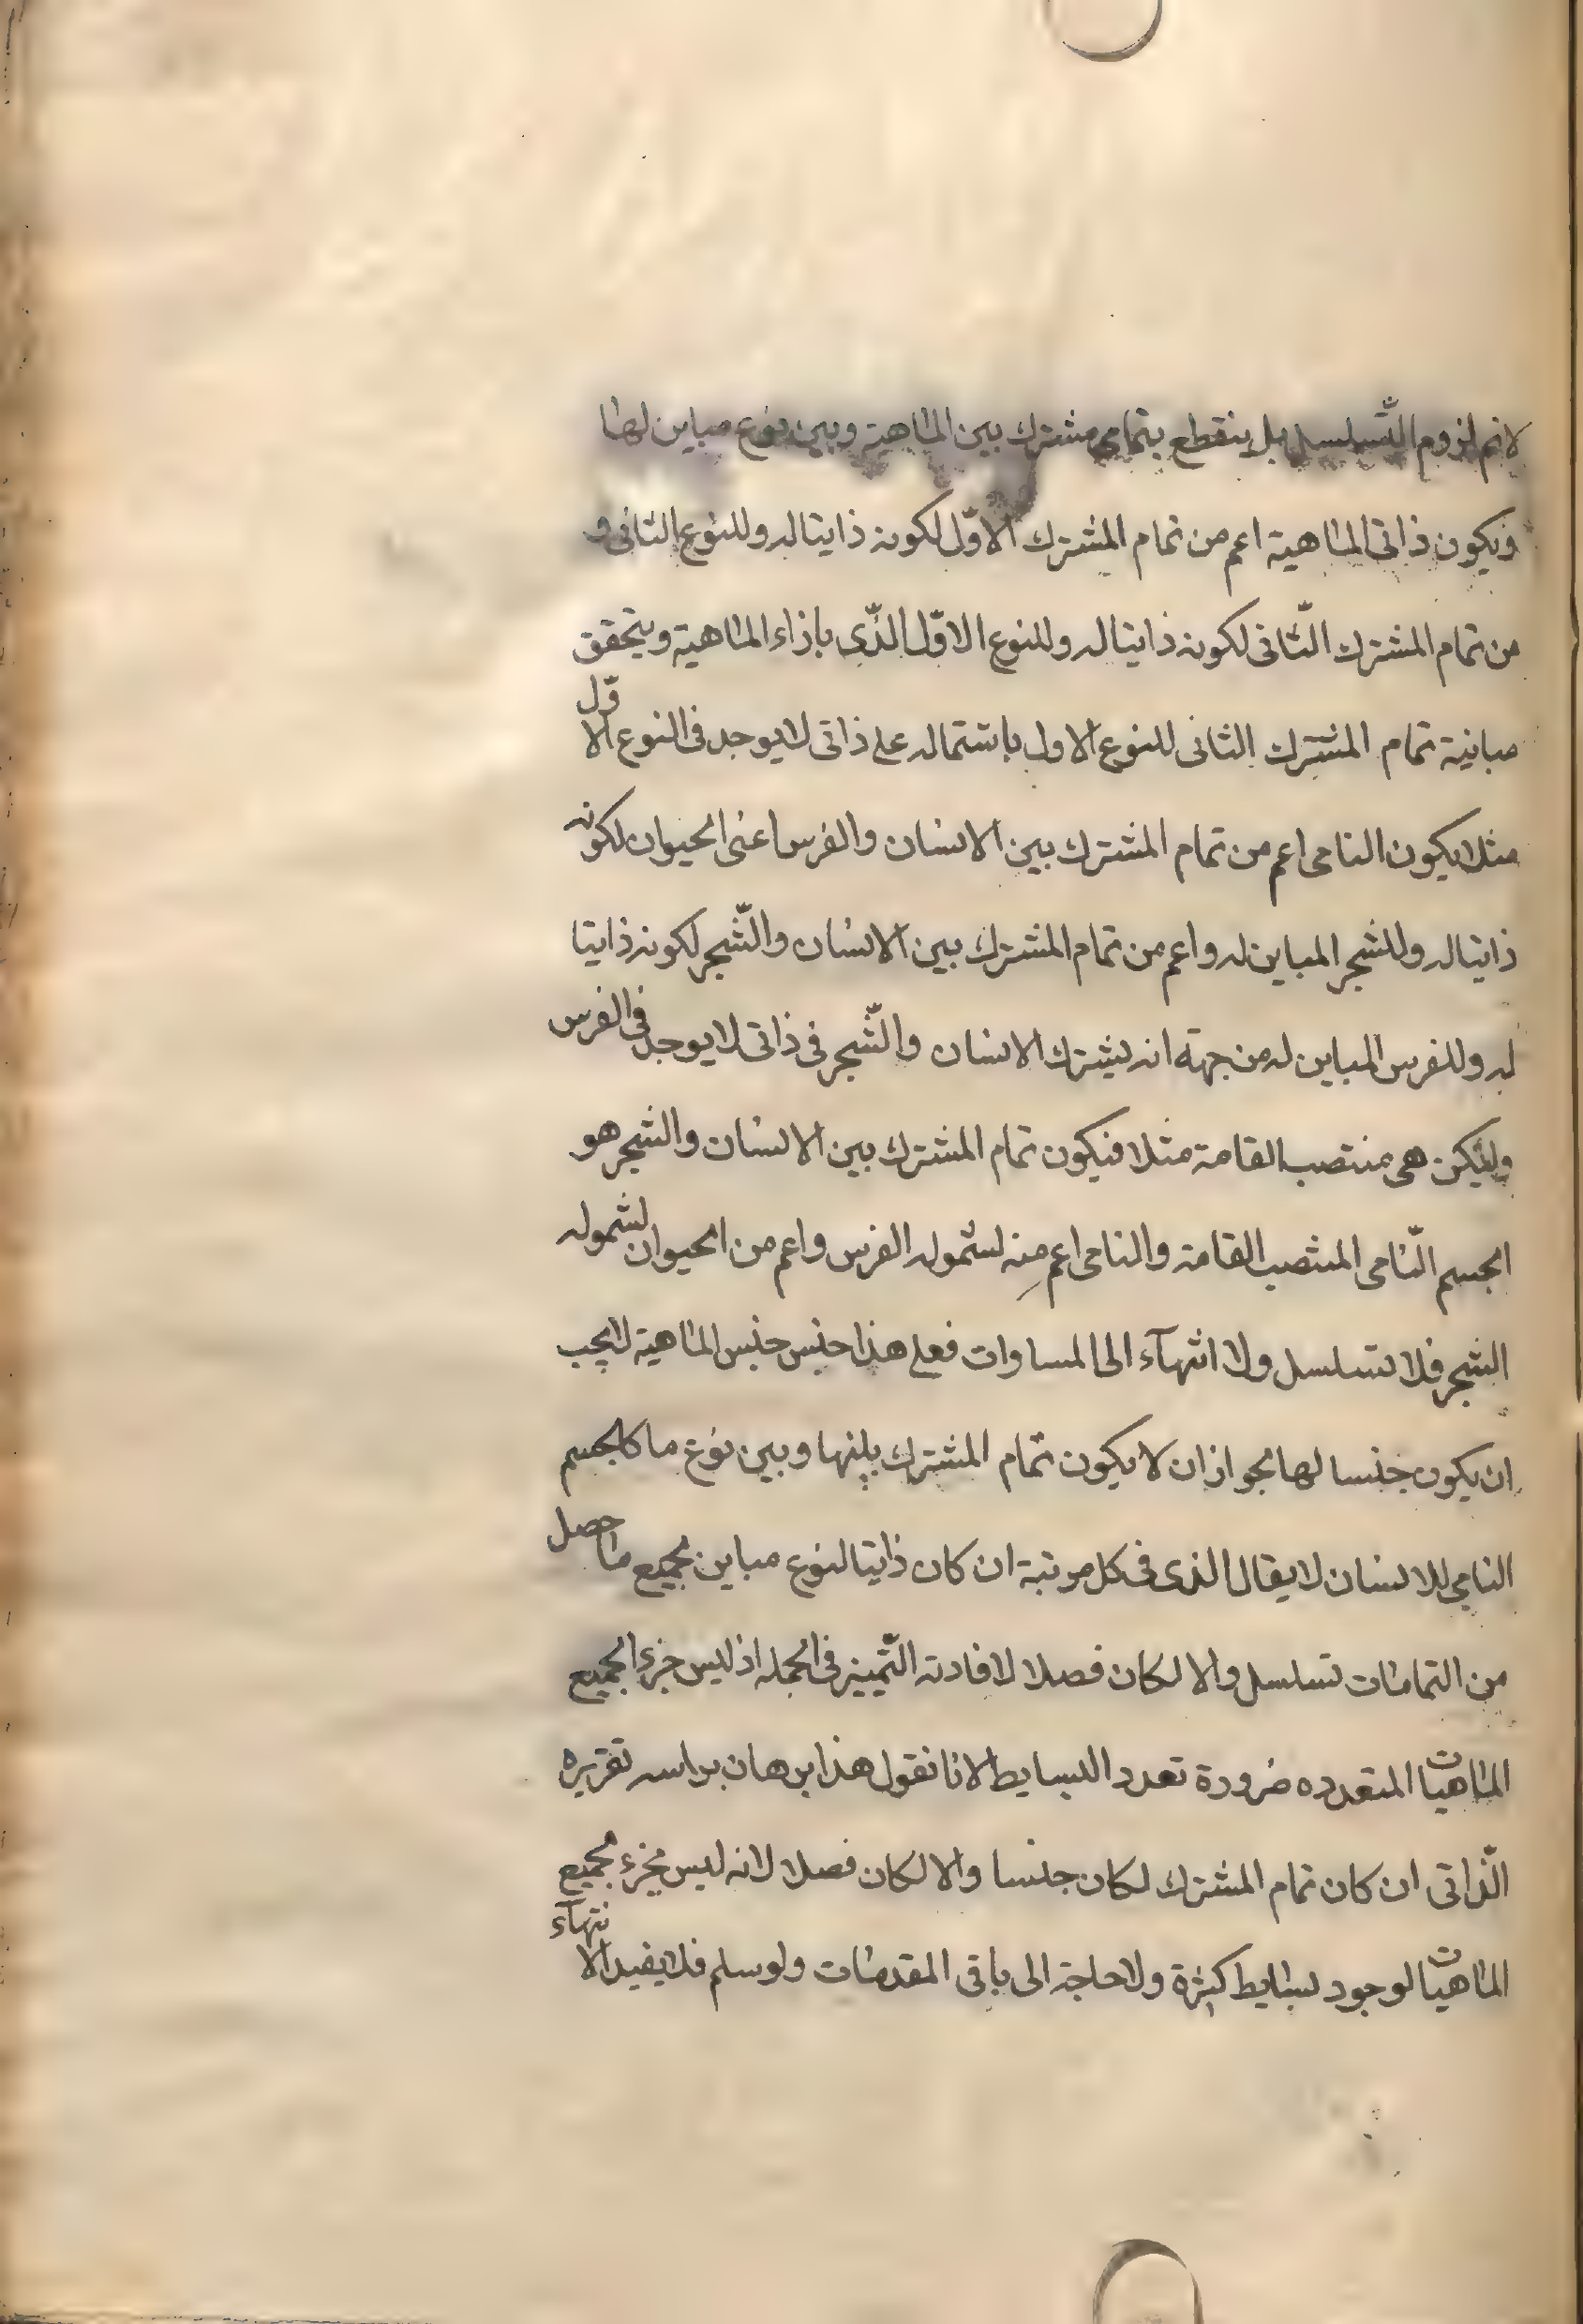 لانم لزوم التّسلسل بل ينقطع بتمامى مشترك بين الماهية وبين نوع مباين لها
فيكون ذاتى الماهية اعم من تمام المشترك الاوّل لكونه ذاتيا له وللنوع الثانى و
من تمام المشترك الثّانى لكونه ذاتيا له وللنوع الاوّل الذّى بازاء الماهية ويتحقق
مباينة تمام المشترك الثانى للنوع الاول باشتماله على ذاتى لا يوجد فى النوع الاوّل
مثلا يكون النامى اعم من تمام المشترك بين الانسان والفرس اعنى الحيوان لكونه
ذاتيا له وللشجر المباين له واعم من تمام المشترك بين الانسان والشّجر لكونه ذاتيا
له وللفرس المباين له من جهة انه يشترك الانسان والشّجر فى ذاتى لا يوجد فى الفرس
وليكن هى منتصب القامة مثلا فيكون تمام المشترك بين الانسان والشجر هو
الجسم النّامى المنتصب القامة والنامى اعم منه لشموله الفرس واعم من الحيوان لشموله
الشجر فلا تسلسل ولا انتهآء الى المساوات فعلى هذا جنس جنس الماهية لا يجب
ان يكون جنسا لها لجواز ان لا يكون تمام المشترك بينها وبين نوع ما كالجسم
النامى للانسان لا يقال الذى فى كل مرتبة ان كان ذاتيا لنوع مباين لجميع ما حصل
من التمامات تسلسل والا لكان فصلا لافادته التّميز فى الجمله اذ ليس جزء الجميع
الماهيات المتعدده ضرورة تعدد البسايط لانا نقول هذا برهان براسه تقريره
الذّاتى ان كان تمام المشترك لكان جنسا والا لكان فصلا لانه ليس بجزء لجميع
الماهيات لوجود بسايط كثيرة ولا حاجة الى باقى المقدمات ولو سلم فلا يفيد الانتهآء